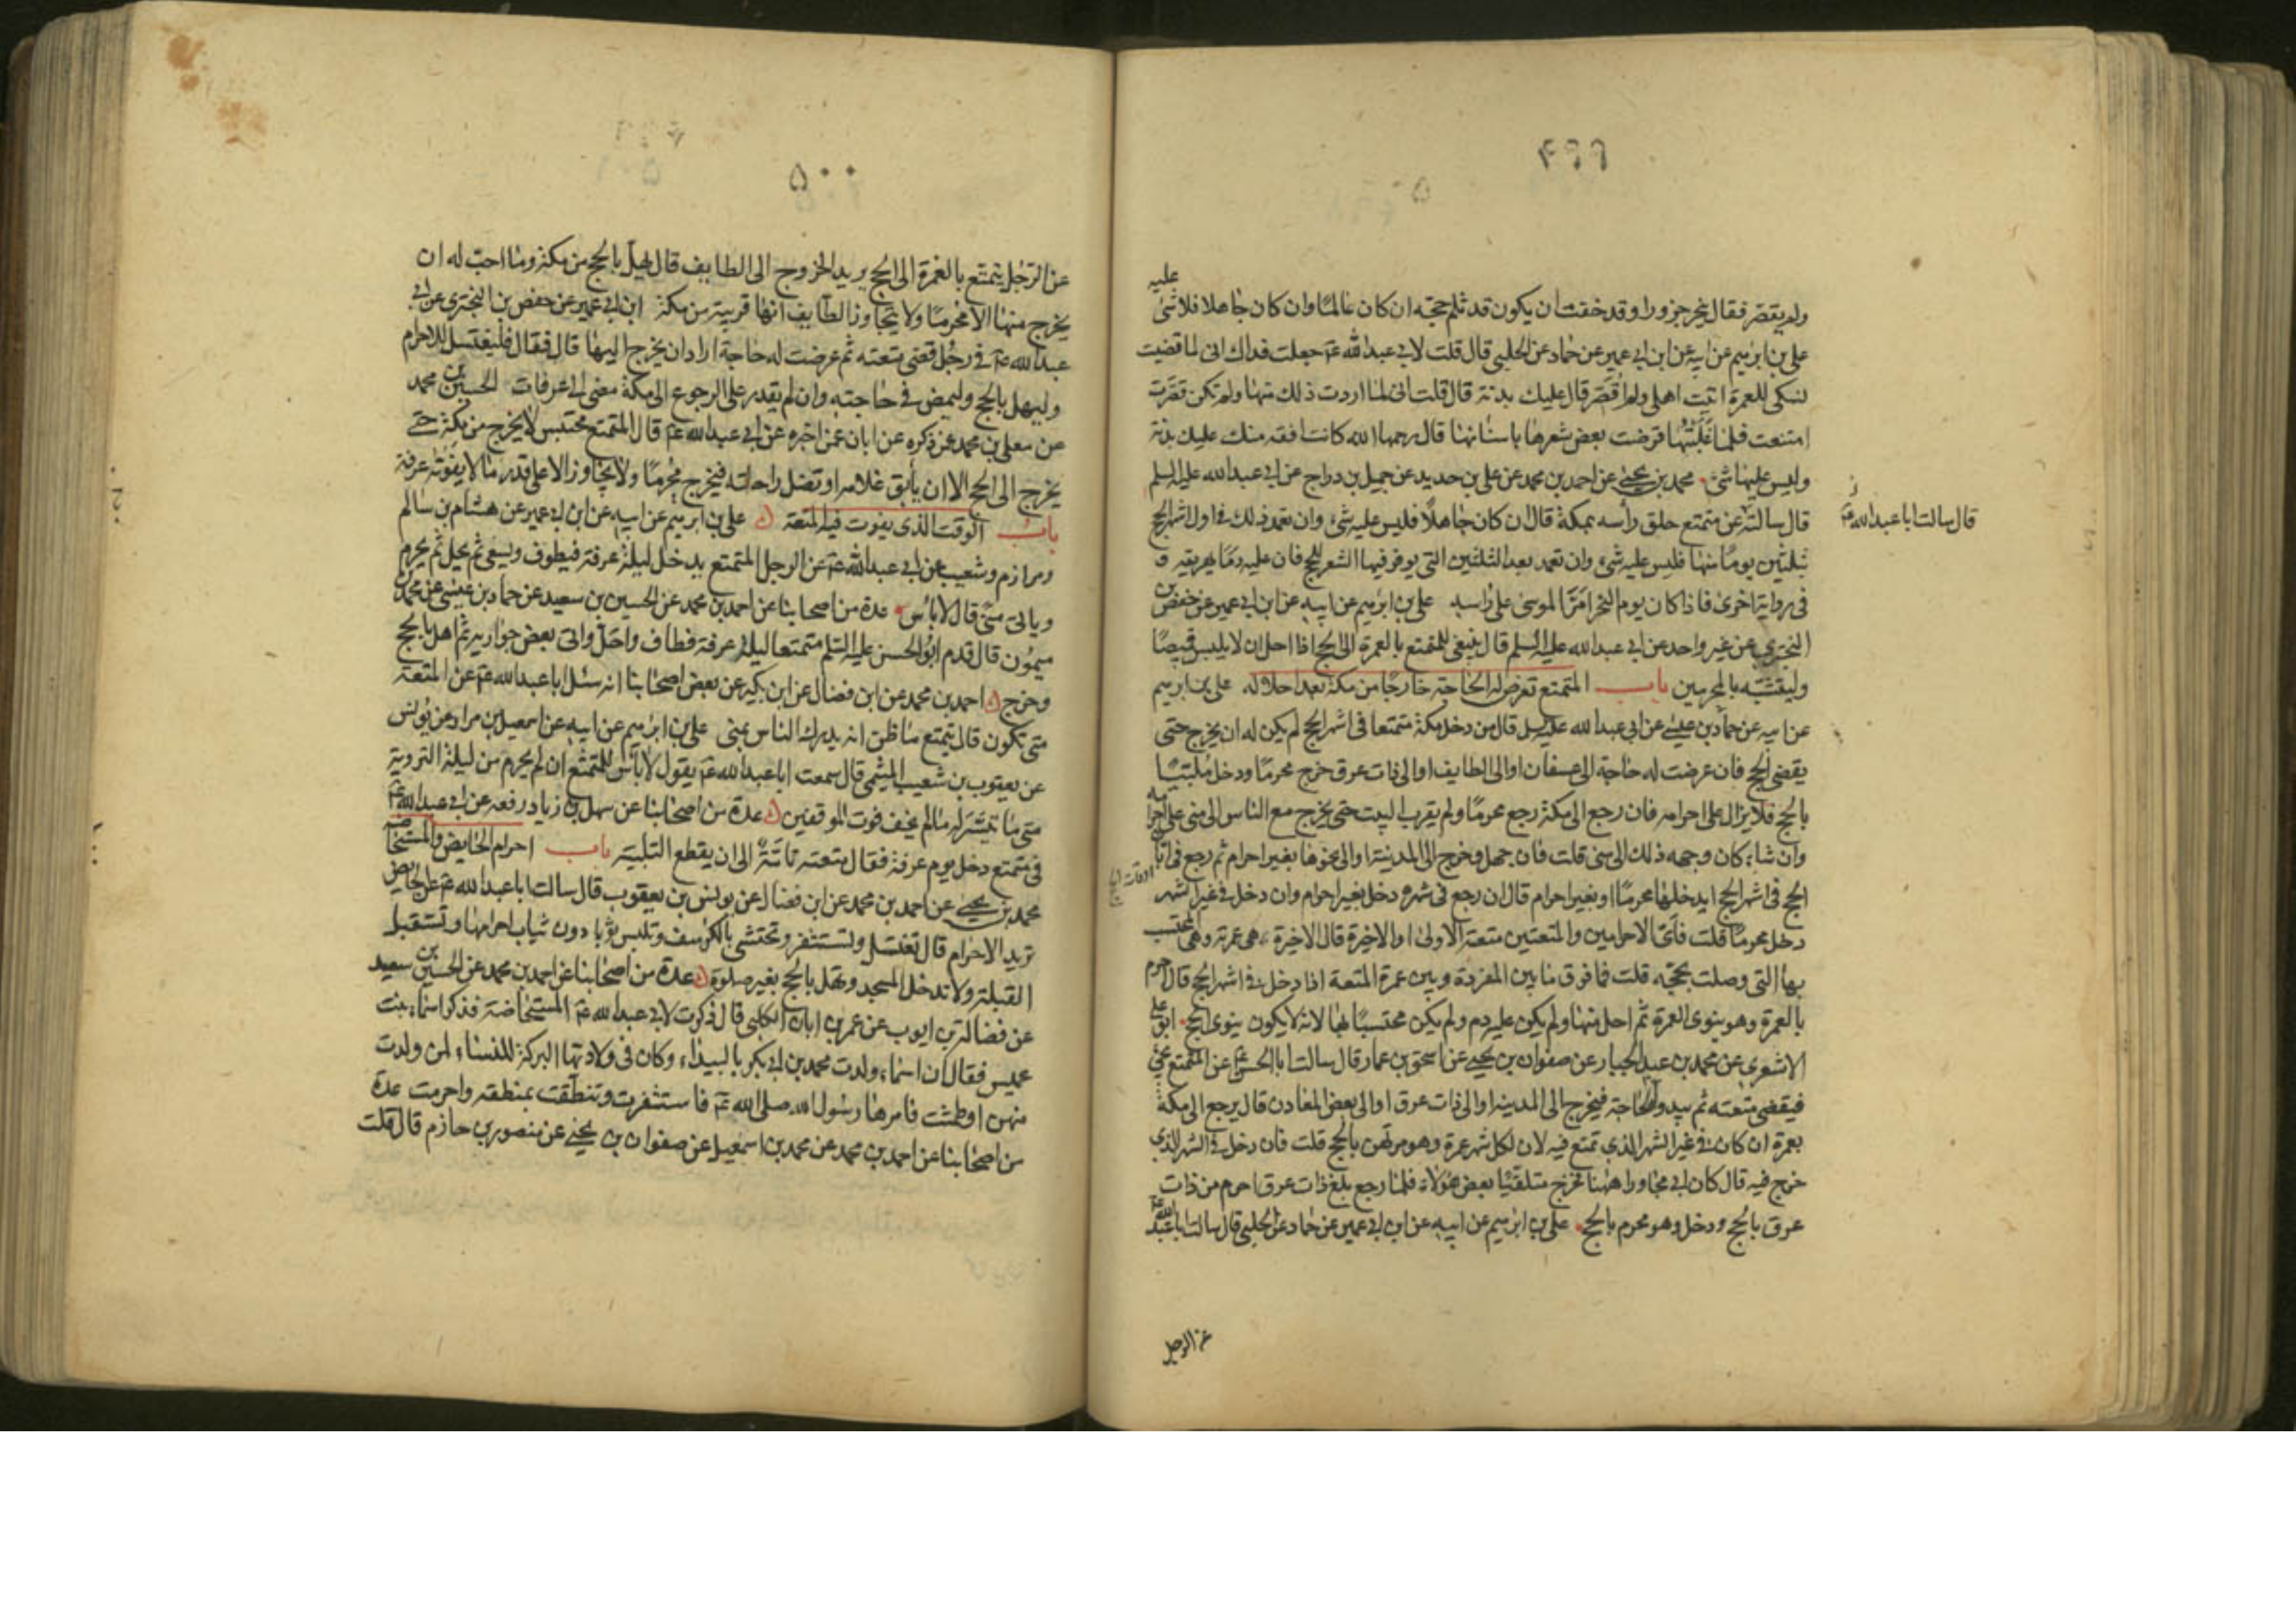 ۴۹۹
عليه
ولم يقصر فقال ينحر جزورا وقد خفت ان يكون قد ثلم حجه ان كان عالما وان كان جاهلا فلا شئ
علي بن ابرهيم عن ابيه عن ابن ابي عمير عن حماد عن الحلبي قال قلت لابي عبد الله عم جعلت فداك اني لما قضيت
نسكي للعمرة اتيت اهلي ولم اقصر قال عليك بدنة قال قلت اني لما اردت ذلك منها ولم تكن قصرت
امتنعت فلما غلبتها قرضت بعض شعرها باسنانها قال رحمها الله كانت افقه منك عليك بدنة
وليس عليها شئ محمد بن يحيى عن احمد بن محمد عن علي بن حديد عن جميل بن دراج عن ابي عبد الله عليه السلم
قال سالت ابا عبد الله عم
قال سالته عن متمتع حلق رأسه بمكة قال ان كان جاهلا فليس عليه شئ وان تعمد ذلك في اول اشهر الحج
بثلثين يوما منها فليس عليه شئ وان تعمد بعد الثلثين التي يوفر فيها الشعر للحج فان عليه دما يهريقه و
في رواية اخرى فاذا كان يوم النحر امر الموسى على راسه علي بن ابرهيم عن ابيه عن ابن ابي عمير عن حفص بن
البختري عن غير واحد عن ابي عبد الله عليه السلم قال ينبغي للمتمتع بالعمرة الى الحج اذا احل ان لا يلبس قميصا
وليتشبه بالمحرمين باب المتمتع تعرض له الحاجة خارجا من مكة بعد احلاله علي بن ابرهيم
عن ابيه عن حماد بن عيسى عن ابي عبد الله عليه السلم قال من دخل مكة متمتعا في اشهر الحج لم يكن له ان يخرج حتى
يقضي الحج فان عرضت له حاجة الى عسفان او الى الطايف او الى ذات عرق خرج محرما ودخل ملبيا
بالحج فلا يزال على احرامه فان رجع الى مكة رجع محرما ولم يقرب البيت حتى يخرج مع الناس الى منى على احرامه
وان شاء كان وجهه ذلك الى منى قلت فان جهل وخرج الى المدينة او الى نحوها بغير احرام ثم رجع في ابان
الحج في اشهر الحج ايدخلها محرما او بغير احرام قال ان رجع في شهره دخل بغير احرام وان دخل في غير الشهر
دخل محرما قلت فاي الاحرامين والمتعتين متعته الاولى او الاخيرة قال الاخيرة هي عمرته وهي المحتبس
بها التي وصلت بحجته قلت فما فرق ما بين المفردة وبين عمرة المتعة اذا دخل في اشهر الحج قال احرم
بالعمرة وهو ينوي العمرة ثم احل منها ولم يكن عليه دم ولم يكن محتسبا بها لانه لا يكون ينوي الحج ابو علي
الاشعري عن محمد بن عبد الجبار عن صفوان بن يحيى عن اسحق بن عمار قال سالت ابا الحسن عم عن المتمتع يجئ
فيقضي متعته ثم يبدو له الحاجة فيخرج الى المدينة او الى ذات عرق او الى بعض المعادن قال يرجع الى مكة
بعمرة ان كان في غير الشهر الذي تمتع فيه لان لكل شهر عمرة وهو مرتهن بالحج قلت فان دخل في الشهر الذي
خرج فيه قال كان ابي مجاورا ههنا فخرج متلقيا بعض هؤلاء فلما رجع بلغ ذات عرق احرم من ذات
عرق بالحج ودخل وهو محرم بالحج علي بن ابرهيم عن ابيه عن ابن ابي عمير عن حماد عن الحلبي قال سالت ابا عبد الله عم
عن الرجل
۵۰۰
عن الرجل يتمتع بالعمرة الى الحج يريد الخروج الى الطايف قال يهل بالحج من مكة وما احب له ان
يخرج منها الا محرما ولا يتجاوز الطايف انها قريبة من مكة ابن ابي عمير عن حفص بن البختري عن ابي
عبد الله عم في رجل قضى متعته ثم عرضت له حاجة اراد ان يخرج اليها قال فقال فليغتسل للاحرام
وليهل بالحج وليمض في حاجته وان لم يقدر على الرجوع الى مكة مضى الى عرفات الحسين بن محمد
عن معلى بن محمد عن ذكره عن ابان عمن اخبره عن ابي عبد الله عم قال المتمتع محتبس لا يخرج من مكة حتى
يخرج الى الحج الا ان يأبق غلامه او تضل راحلته فيخرج محرما ولا يجاوز الا على قدر ما لا يفوته عرفة
باب الوقت الذي يفوت فيه المتعة علي بن ابرهيم عن ابيه عن ابن ابي عمير عن هشام بن سالم
ومرازم وشعيب عن ابي عبد الله عم عن الرجل المتمتع يدخل ليلة عرفة فيطوف ويسعى ثم يحل ثم يحرم
وياتي منى قال لا بأس عدة من اصحابنا عن احمد بن محمد عن الحسين بن سعيد عن حماد بن عيسى عن محمد بن
ميمون قال قدم ابو الحسن عليه السلم متمتعا ليلة عرفة فطاف واحل واتى بعض جواريه ثم اهل بالحج
وخرج احمد بن محمد عن ابن فضال عن ابن بكير عن بعض اصحابنا انه سئل ابا عبد الله عم عن المتعة
متى تكون قال يتمتع ما ظن انه يدرك الناس بمنى علي بن ابرهيم عن ابيه عن اسمعيل بن مرار عن يونس
عن يعقوب بن شعيب الميثمي قال سمعت ابا عبد الله عم يقول لا بأس للمتمتع ان لم يحرم من ليلة التروية
متى ما تيسر له ما لم يخف فوت الموقفين عدة من اصحابنا عن سهل بن زياد رفعه عن ابي عبد الله عم
في متمتع دخل يوم عرفة فقال متعته تامة الى ان يقطع التلبية باب احرام الحايض والمستحاضة
محمد بن يحيى عن احمد بن محمد عن ابن فضال عن يونس بن يعقوب قال سالت ابا عبد الله عم عن الحايض
تريد الاحرام قال تغتسل وتستثفر وتحتشي بالكرسف وتلبس ثوبا دون ثياب احرامها وتستقبل
القبلة ولا تدخل المسجد وتهل بالحج بغير صلوة عدة من اصحابنا عن احمد بن محمد عن الحسين بن سعيد
عن فضالة بن ايوب عن عمر بن ابان الكلبي قال ذكرت لابي عبد الله عم المستحاضة فذكر اسماء بنت
عميس فقال ان اسماء ولدت محمد بن ابي بكر بالبيداء وكان في ولادتها البركة للنساء لمن ولدت
منهن او طمثت فامرها رسول الله صلى الله عم فاستثفرت وتنطقت بمنطقه واحرمت عدة
من اصحابنا عن احمد بن محمد عن محمد بن اسمعيل عن صفوان بن يحيى عن منصور بن حازم قال قلت